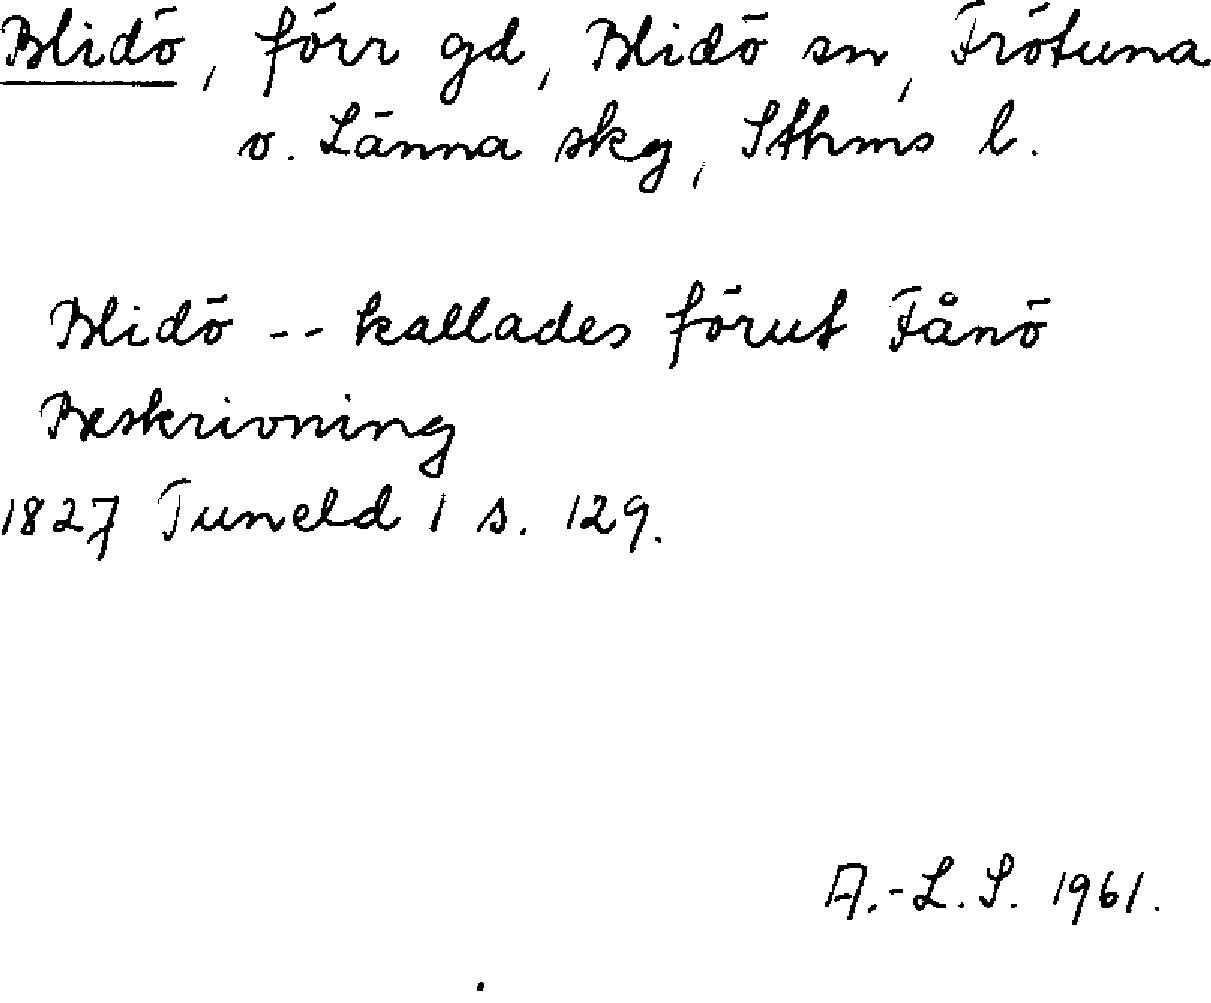 Blidö, förr gd, Blidö sn, Frötuna
o. Länna skg, Sthms l.
Blidö -- kallades förut Fånö
Beskrivning
1827 Tuneld 1 s. 129.
A.-L. S. 1961.